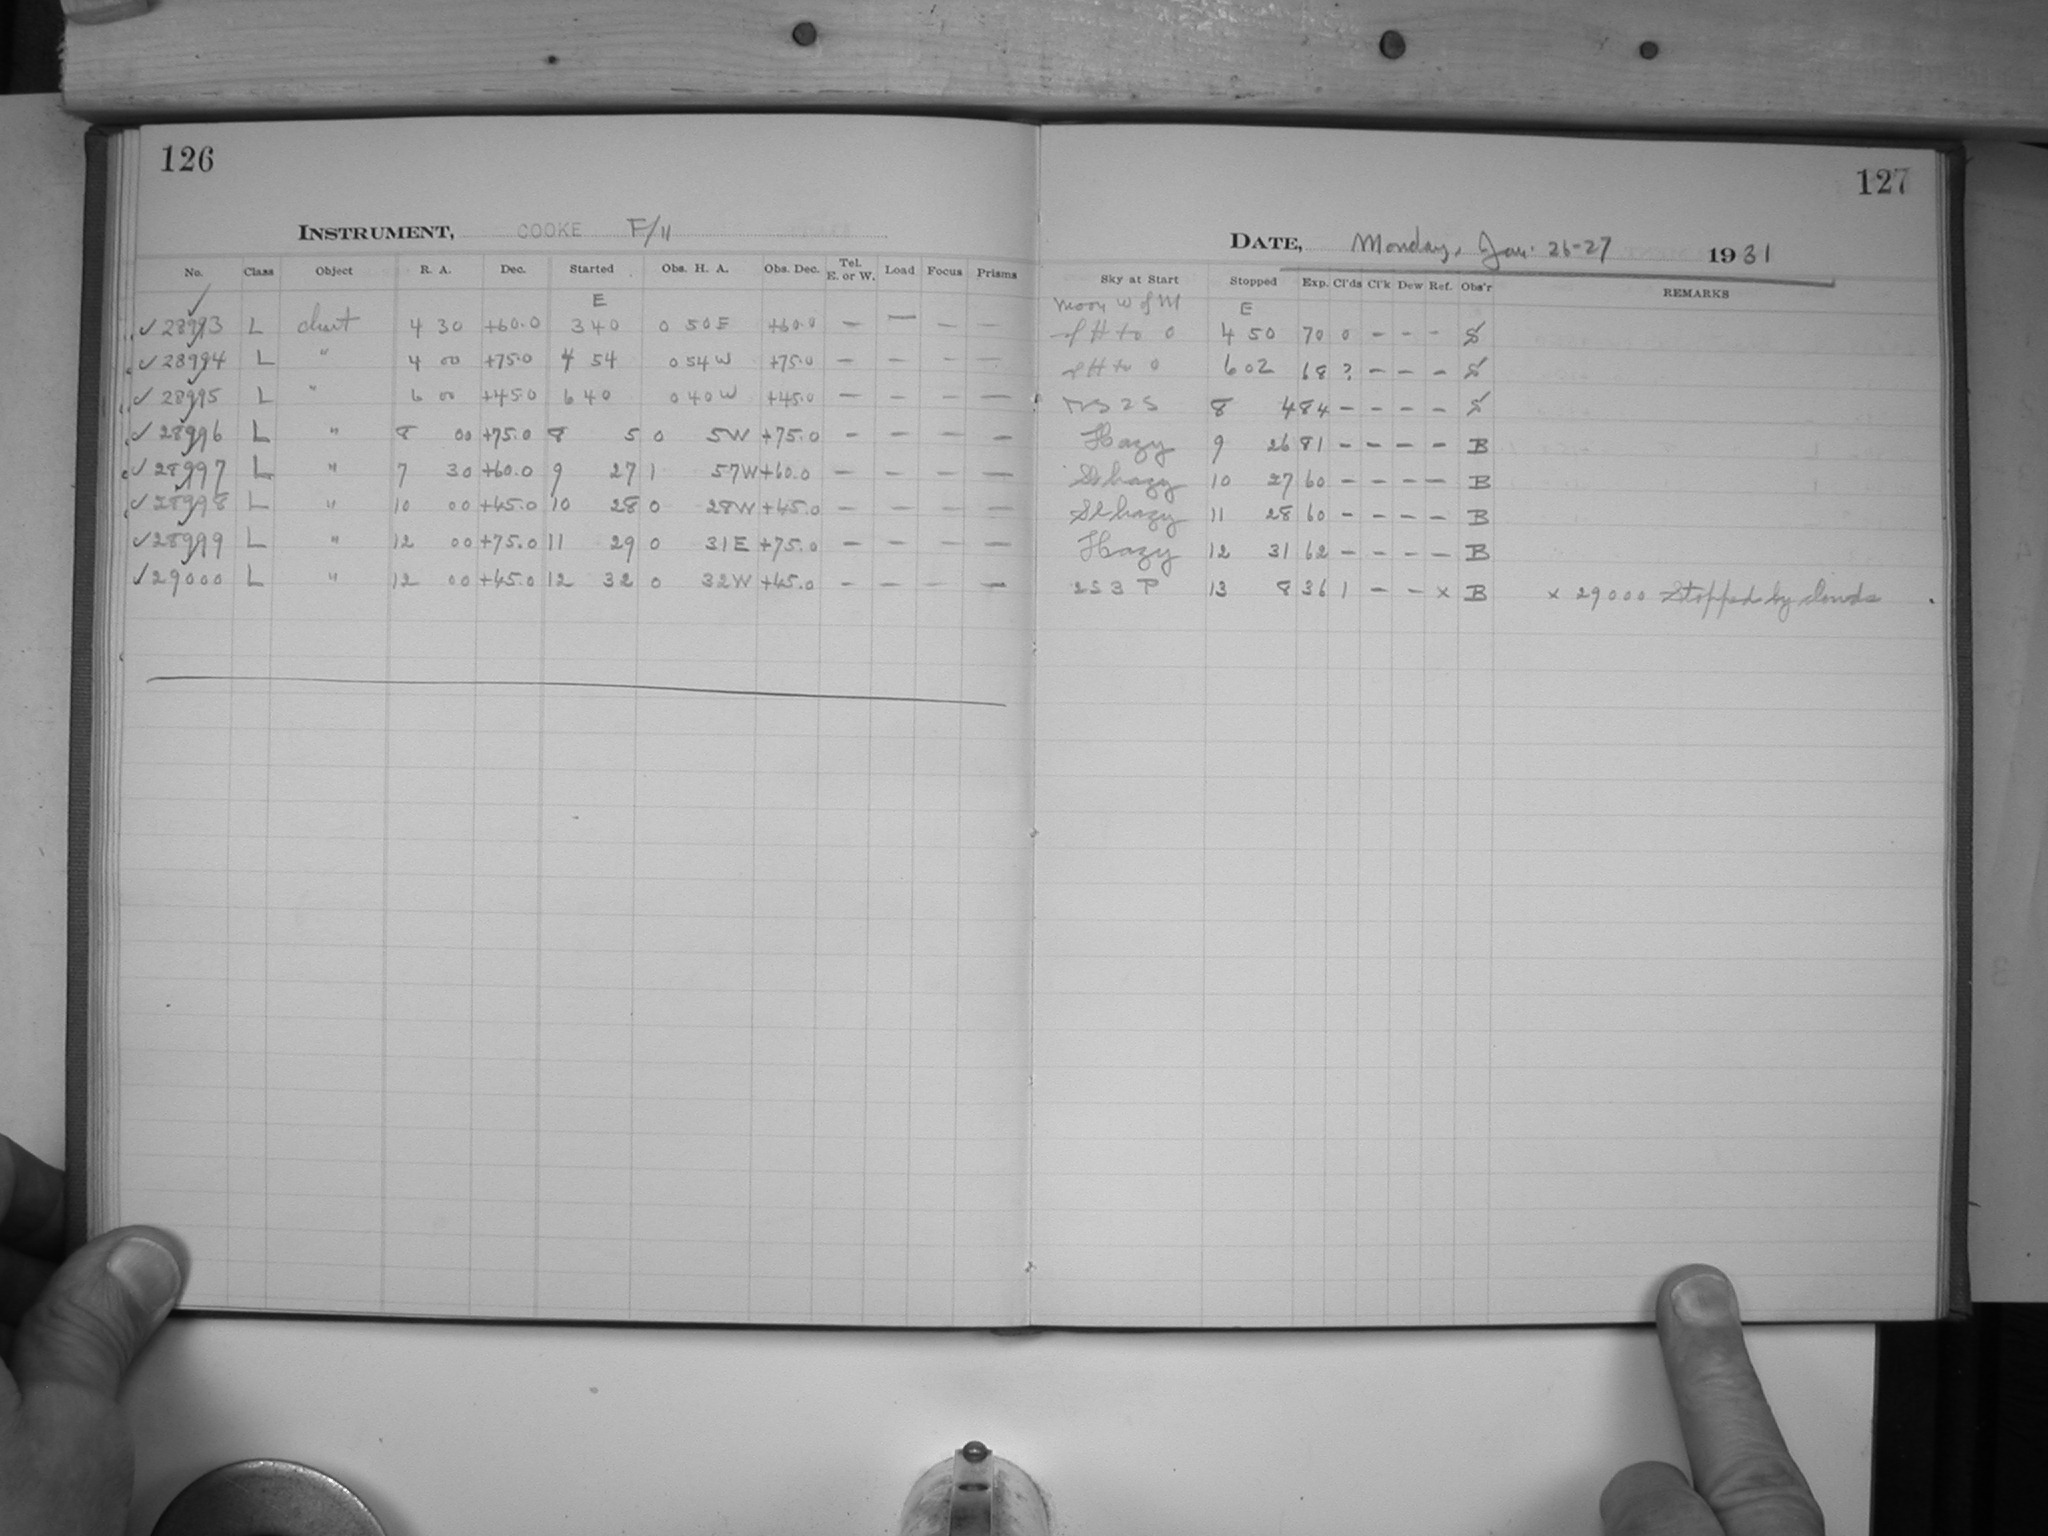 126
INSTRUMENT, COOKE F/11
No. Class Object R. A. Dec. Started Obs. H. A. Obs. Dec. Tel. E. or W. Load Focus Prisms
E
✓ 28993 L chart 4 30 +60.0 3 40 0 50 E +60.0 — — — —
✓ 28994 L " 4 00 +75.0 4 54 0 54 W +75.0 — — — —
✓ 28995 L " 6 00 +45.0 6 40 0 40 W +45.0 — — — —
✓ 28996 L " 8 00 +75.0 8 5 0 5W +75.0 — — — —
✓ 28997 L " 7 30 +60.0 9 27 1 57W +60.0 — — — —
✓ 28998 L " 10 00 +45.0 10 28 0 28W +45.0 — — — —
✓ 28999 L " 12 00 +75.0 11 29 0 31E +75.0 — — — —
✓ 29000 L " 12 00 +45.0 12 32 0 32W +45.0 — — — —
127
DATE, Monday, Jan. 26-27 1931
Sky at Start Stopped Exp. Cl'ds Cl'k Dew Ref. Obs'r REMARKS
Moon W of M E
H to 0 4 50 70 0 — — — S
H to 0 6 02 68 ? — — — S
2 S 8 4 84 — — — — S
Hazy 9 26 81 — — — — B
Sl hazy 10 27 60 — — — — B
Sl hazy 11 28 60 — — — — B
Hazy 12 31 62 — — — — B
2S 3 P 13 8 36 1 — — x B x 29000 Stopped by clouds